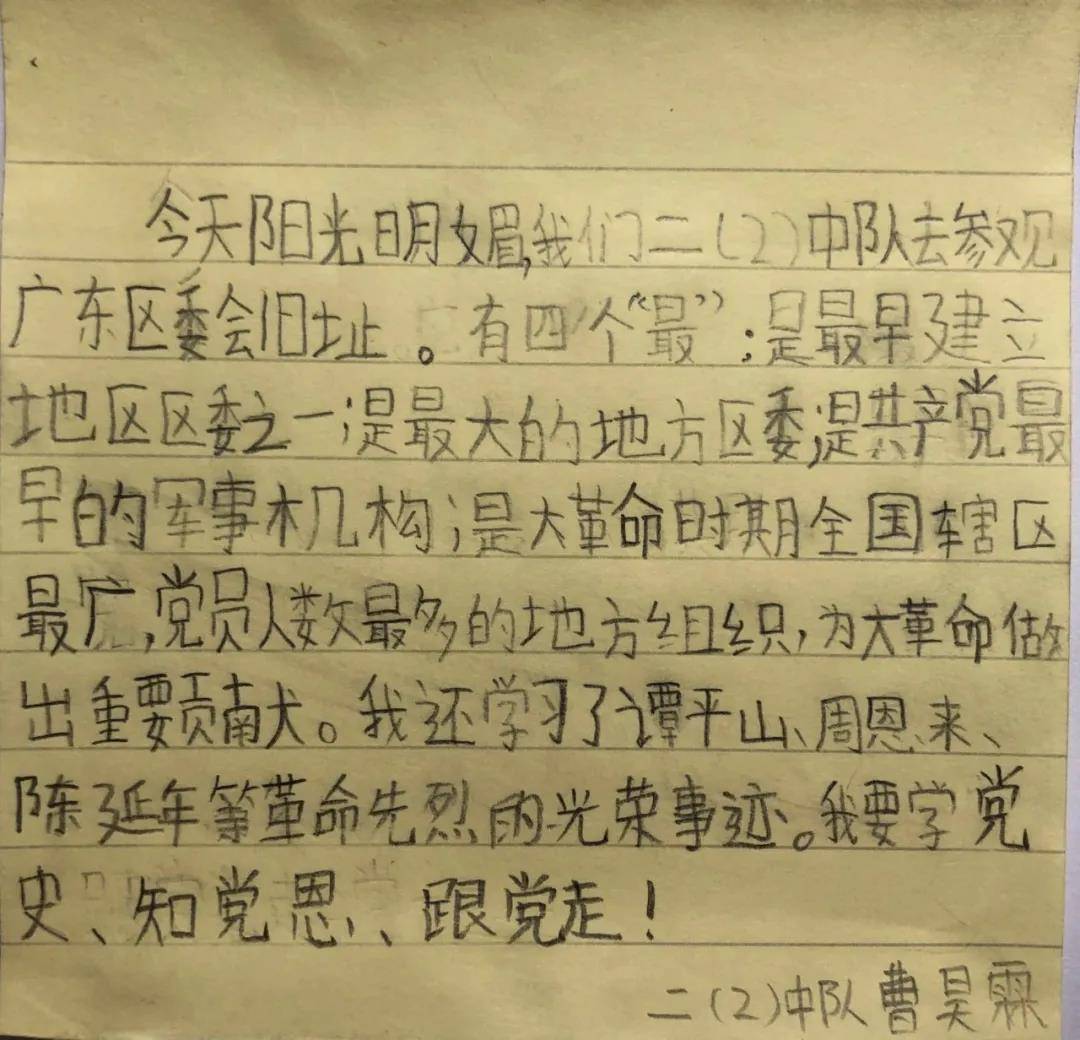 今天阳光明媚,我们二(2)中队去参观
广东区委会旧址。有四个“最”;是最早建立
地区区委之一;是最大的地方区委;是共产党最
早的军事机构;是大革命时期全国辖区
最广,党员人数最多的地方组织,为大革命做
出重要贡献。我还学习了谭平山、周恩来、
陈延年等革命先烈的光荣事迹。我要学党
史、知党恩、跟党走!
二(2)中队曹昊霖